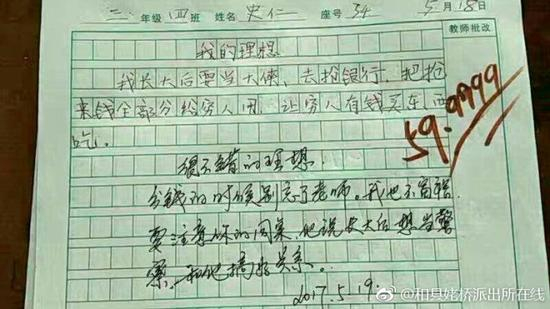 二年级四班 姓名 史仁 座号 34 5月18日
教师批改
我的理想
我长大后要当大侠,去抢银行,把抢
来钱全部分给穷人用,让穷人有钱买东西
吃.
59.9999
很不错的理想.
分钱的时候别忘了老师。我也不富裕
要注意你的同桌,他说长大后想当警
察,和他搞好关系。
2017.5.19.
@和县姥桥派出所在线